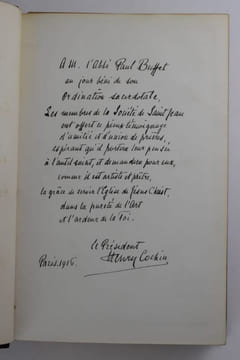 A M. l'Abbé Paul Buffet
au jour béni de son
Ordination sacerdotale,
Les membres de la Société de Saint Jean
ont offert ce pieux témoignage
d'amitié et d'union de prières,
espérant qu'il portera leur pensée
à l'autel saint, et demandera pour eux,
comme il est artiste et prêtre,
la grâce de servir l'Eglise de Jésus Christ,
dans la pureté de l'Art
et l'ardeur de la Foi.
Le Président
Henry Cochin
Paris. 1916.